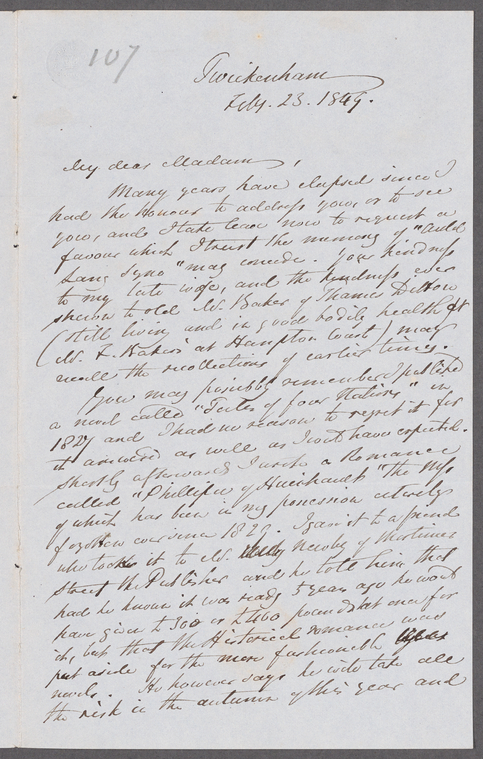 107
Twickenham
Feby. 23. 1849.
My dear Madam,
Many years have elapsed since I
had the honour to address you, or to see
you, and I take leave now to request a
favour which I trust the memory of "Auld
Lang Syne" may concede. Your kindness
to my late wife, and the kindness ever
shewn to old Mr. Baker of Thames Ditton
(still living and in good bodily health at
Mr. F. Baker's at Hampton Court) may
recall the recollections of earlier times.
You may possibly remember I published
a novel called "Tales of four Nations" in
1827 and I had no reason to regret it for
it answered as well as I could have expected.
Shortly afterwards I wrote a Romance
called "Phillip of" "The Mss
of which has been in my possession entirely
forgotten ever since 1829. I gave it to a friend
who took it to Mr. Newby of Mortimer
Street the Publisher and he told him that
had he known it was ready 5 years ago he would
have given £300 or £400 pounds at once for
it, but that the Historical romance was
put aside for the more fashionable
novels. He however says he will take all
the risk in the autumn of this year and